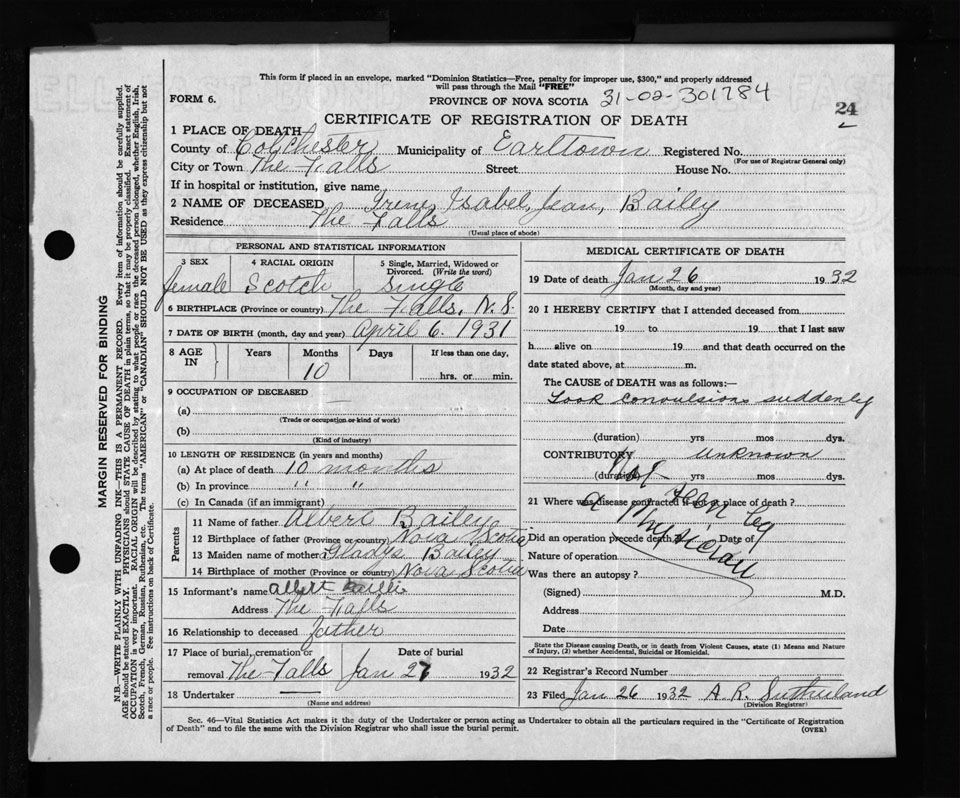 This form if placed in an envelope, marked "Dominion Statistics—Free, penalty for improper use, $300," and properly addressed
will pass through the Mail "FREE"
FORM 6.
PROVINCE OF NOVA SCOTIA 31-02-301784
24
CERTIFICATE OF REGISTRATION OF DEATH
1 PLACE OF DEATH
County of Colchester Municipality of Earltown Registered No.
(For use of Registrar General only)
City or Town The Falls Street House No.
If in hospital or institution, give name
2 NAME OF DECEASED Irene, Isabel, Jean, Bailey
Residence The Falls
(Usual place of abode)
PERSONAL AND STATISTICAL INFORMATION
3 SEX 4 RACIAL ORIGIN 5 Single, Married, Widowed or
Divorced. (Write the word)
female Scotch Single
6 BIRTHPLACE (Province or country) The Falls, N.S.
7 DATE OF BIRTH (month, day and year) April 6. 1931
8 AGE IN Years Months Days If less than one day,
10 hrs. or min.
9 OCCUPATION OF DECEASED —
(a)
(Trade or occupation or kind of work)
(b)
(Kind of industry)
10 LENGTH OF RESIDENCE (in years and months)
(a) At place of death 10 months
(b) In province " "
(c) In Canada (if an immigrant)
Parents
11 Name of father Albert Bailey
12 Birthplace of father (Province or country) Nova Scotia
13 Maiden name of mother Gladys Bailey
14 Birthplace of mother (Province or country) Nova Scotia
15 Informant's name albert
Address The Falls
16 Relationship to deceased father
17 Place of burial, cremation or Date of burial
removal The Falls Jan 27 1932
18 Undertaker —
(Name and address)
MEDICAL CERTIFICATE OF DEATH
19 Date of death Jan 26 1932
(Month, day and year)
20 I HEREBY CERTIFY that I attended deceased from
19 to 19 that I last saw
h alive on 19 and that death occurred on the
date stated above, at m.
The CAUSE of DEATH was as follows:—
Took convulsions suddenly
(duration) yrs mos dys.
CONTRIBUTORY unknown
(duration) yrs mos dys.
21 Where was disease contracted if not a place of death?
Did an operation precede death Date of
Nature of operation
Was there an autopsy?
Not
a Physician
(Signed) M.D.
Address
Date
State the Disease causing Death, or in death from Violent Causes, state (1) Means and Nature
of Injury, (2) whether Accidental, Suicidal or Homicidal.
22 Registrar's Record Number
23 Filed Jan 26 1932 A R Sutherland
(Division Registrar)
Sec. 46—Vital Statistics Act makes it the duty of the Undertaker or person acting as Undertaker to obtain all the particulars required in the "Certificate of Registration
of Death" and to file the same with the Division Registrar who shall issue the burial permit. (OVER)
MARGIN RESERVED FOR BINDING
N.B.—WRITE PLAINLY WITH UNFADING INK—THIS IS A PERMANENT RECORD. Every item of information should be carefully supplied.
AGE should be stated EXACTLY. PHYSICIANS should STATE CAUSE OF DEATH in plain terms, so that it may be properly classified. Exact statement of
OCCUPATION is very important. RACIAL ORIGIN will be described by stating to what people or race the deceased person belonged, whether English, Irish,
Scotch, French, German, Russian, Ruthenian, etc. The terms "AMERICAN" or "CANADIAN" SHOULD NOT BE USED as they express citizenship but not
a race or people. See instructions on back of Certificate.